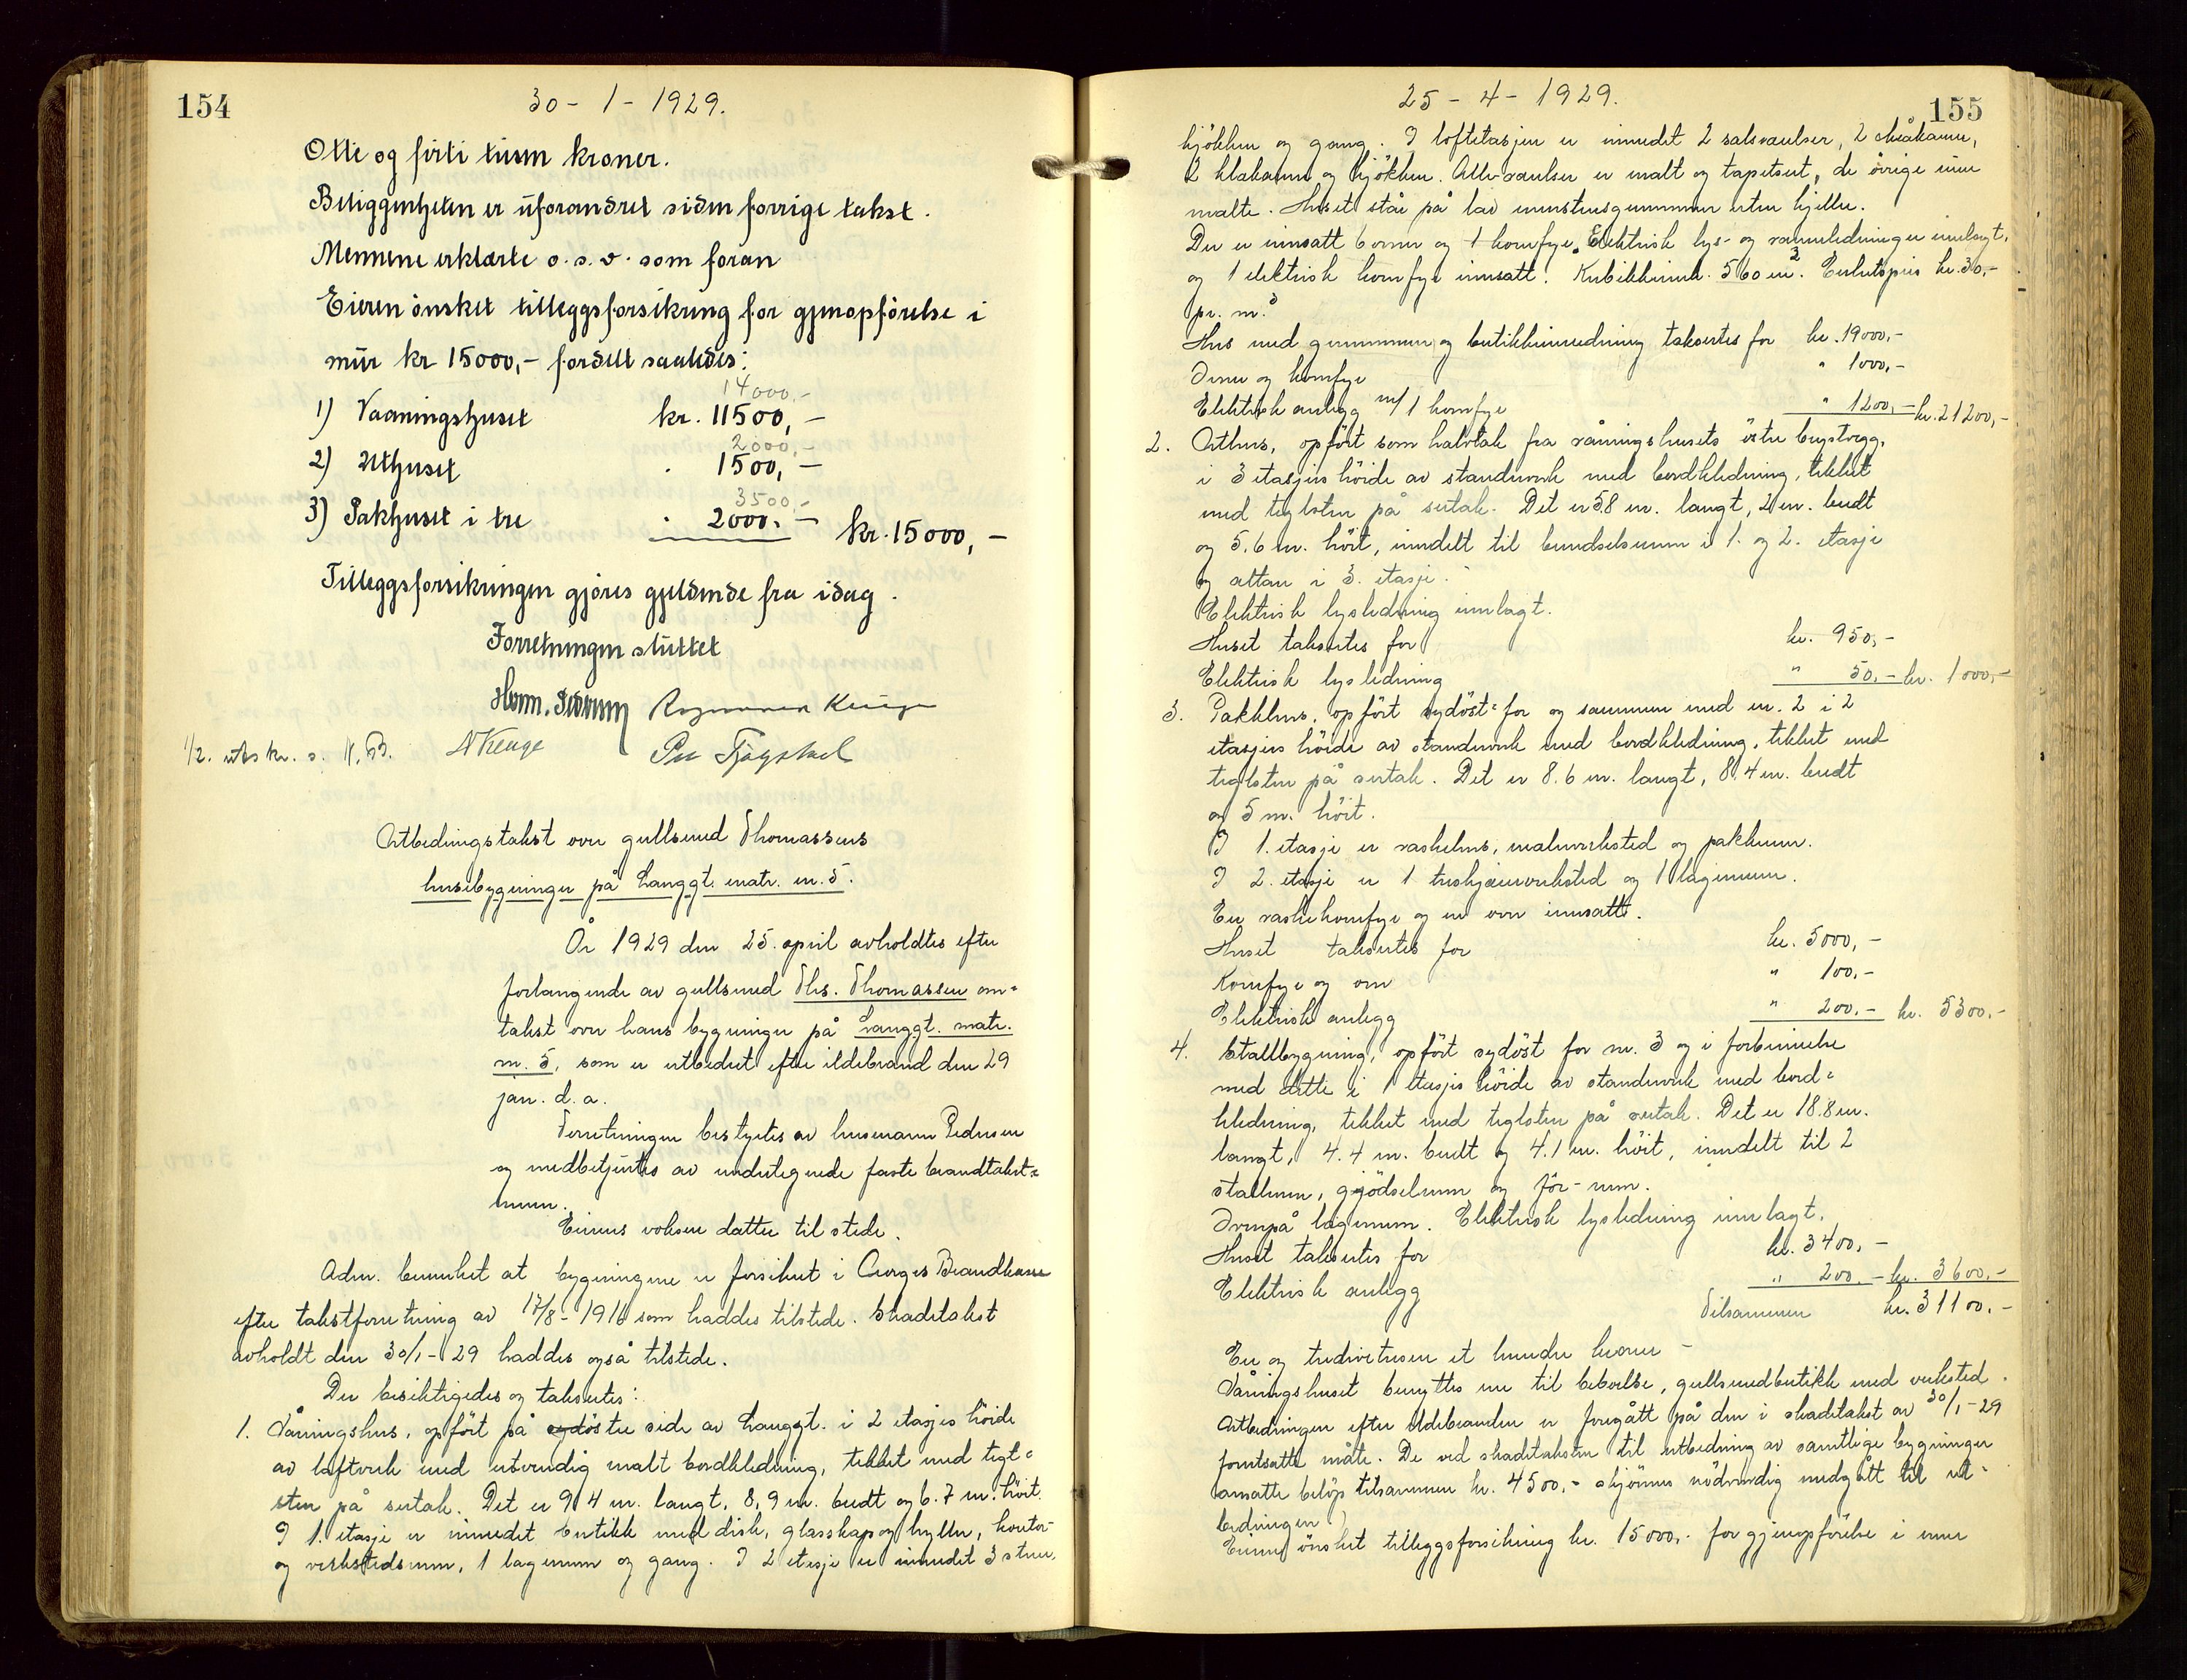 154
30 - 1 - 1929.
Otte og förti tusen kroner.
Beliggenheten er uforandret siden forrige takst.
Mennene erklærte o.s.v. som foran
Eieren önsket tilleggsforsikring for gjenopförelse i
mur kr 15000,- fordelt saaledes:
14000,-
1) Vaaningshuset kr. 11500,-
2000,-
2) Uthuset " 1500,-
3500,-
3) Pakhuset i tre " 2000.- kr. 15000,-
Tilleggsforsikringen gjöres gjeldende fra idag.
Forretningen sluttet
Herm. Pedersen
1/2. utskr. s. N.B.
Utbedringstakst over gullsmed Thomassens
husebygninger på Langgt. matr. nr. 5.
År 1929 den 25. april avholdtes efter
forlangende av gullsmed Ths. Thomassen om-
takst over hans bygninger på Langgt. matr.
nr. 5, som er utbedret efter ildebrand den 29
jan. d.a.
Forretningen bestyrtes av Pedersen
og medbetjentes av undertegnede faste brandtakst-
menn.
Eierens voksne datter til stede.
Adm. bemerket at bygningene er forsikret i Norges Brandkasse
efter takstforretning av 17/8-1916 som haddes tilstede. Skadetakst
avholdt den 30/1-29 haddes også tilstede.
Der besiktigedes og taksertes:
1. Våningshus, opfört på östre side av Langgt. i 2 etasjes höide
av laftverk med utvendig malt bordkledning, tekket med tegl-
sten på sutak. Det er 9,4 m. langt, 8,9 m. bredt og 6.7 m. höit.
I 1. etasje er innredet butikk med disk, glasskap og hyller, kontor-
og verkstedsrum, 1 lagerrum og gang. I 2 etasje er innredet 3 stuer,
25 - 4 - 1929.
155
kjökken og gang. I loftetasjen er innredet 2 salsværelser, 2 skråkammer,
2 klekammer og kjökken. Alle værelser er malt og tapetsert, de övrige rum
malte. Huset står på lav murstensgrunnmur uten kjeller.
Der er innsatt 6 ovner og 1 komfyr. Elektrisk lys- og varmeledninger innlagt,
og 1 elektrisk komfyr innsatt. Kubikkinnh. 560 m3. Enhetspris kr. 30,-
pr. m.3
Hus med grunnmur og butikkinnredning takseres for kr. 19000,-
Ovner og komfyr " 1000,-
Elektrisk anlegg m/ 1 komfyr " 1200,- kr. 21200,-
2. Uthus, opfört som halvtak fra våningshusets östre brystvegg,
i 3 etasjers höide av stenderverk med bordkledning, tekket
med teglsten på sutak. Det er 5.8 m. langt, 2 m. bredt
og 5.6 m. höit, inndelt til brendselsrum i 1. og 2. etasje
og altan i 3. etasje.
Elektrisk lysledning innlagt.
Huset takseres for kr. 950,-
Elektrisk lysledning " 50,- kr. 1000,-
3. Pakkhus, opfört sydöst for og sammen med nr. 2 i 2
etasjers höide av stenderverk med bordkledning, tekket med
teglsten på sutak. Det er 8.6 m. langt, 8.4 m. bredt
og 5 m. höit.
I 1. etasje er vaskehus, malerverksted og pakkrum.
I 2. etasje er 1 treskjærerverksted og 1 lagerrum.
En vaskekomfyr og en ovn innsatt.
Huset takseres for kr. 5000,-
Komfyr og ovn " 100,-
Elektrisk anlegg " 200,- kr. 5300,-
4. Stallbygning, opfört sydöst for nr. 3 og i forbindelse
med dette i 1 etasjes höide av stenderverk med bord-
kledning, tekket med teglsten på sutak. Det er 18.8 m.
langt, 4.4 m. bredt og 4.1 m. höit, inndelt til 2
stallrum, gjödselrum og för-rum.
Ovenpå lagerrum. Elektrisk lysledning innlagt.
Huset takseres for kr. 3400,-
Elektrisk anlegg " 200,- kr. 3600,-
Tilsammen kr. 31100,-
En og trediveetusen et hundre kroner -
Våningshuset benyttes nu til beboelse, gullsmedbutikk med verksted.
Utbedringen efter ildebranden er foregått på den i skadetakst av 30/1-29
forutsatte måte. De ved skadetaksten til utbedring av samtlige bygninger
ansatte belöp tilsammen kr. 4500,- skjönnes nödvendig medgått til ut-
bedringen.
Eieren önsket tilleggsforsikring kr. 15000,- for gjenopförelse i mur